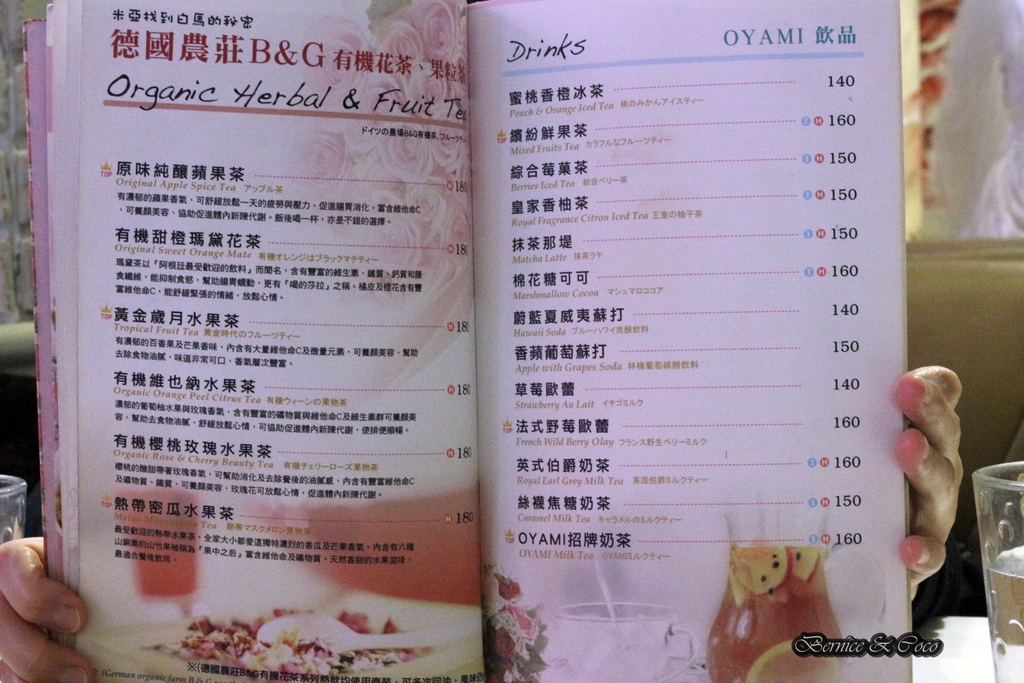 米亞找到白馬的秘密
德國農莊B&G 有機花茶、果粒茶
Organic Herbal & Fruit Tea
ドイツの農場B&G有機茶、フルーツティ
TOP 原味純釀蘋果茶 H 180
Original Apple Spice Tea アップル茶
有濃郁的蘋果香氣，可舒緩放鬆一天的疲勞與壓力、促進腸胃消化，富含維他命C
，可養顏美容、協助促進體內新陳代謝。飯後喝一杯，亦是不錯的選擇。
有機甜橙瑪黛花茶 H 180
Original Sweet Orange Mate 有機オレンジはブラックマテティー
瑪黛茶以「阿根廷最受歡迎的飲料」而聞名，含有豐富的維生素、鐵質、鈣質和膳
食纖維，能抑制食慾、幫助腸胃蠕動，更有「喝的莎拉」之稱。橘皮及橙花含有豐
富維他命C，能舒緩緊張的情緒，放鬆心情。
TOP 黃金歲月水果茶 H 180
Tropical Fruit Tea 黃金時代のフルーツティー
有濃郁的百香果及芒果香味，內含有大量維他命C及微量元素，可養顏美容、幫助
去除食物油膩，味道非常可口，香氣層次豐富。
有機維也納水果茶 H 180
Organic Orange Peel Citrus Tea 有機ウィーンの果物茶
濃郁的葡萄柚水果與玫瑰香氣，含有豐富的礦物質與維他命C及維生素群可養顏美
容、幫助去食物油膩，舒緩放鬆心情，可協助促進體內新陳代謝，使排便順暢。
有機櫻桃玫瑰水果茶 H 180
Organic Rose & Cherry Beauty Tea 有機チェリーローズ果物茶
櫻桃的酸甜帶著玫瑰香氣，可幫助消化及去除餐後的油膩感，內含有豐富維他命C
及礦物質、鐵質，可養顏美容，玫瑰花可放鬆心情，促進體內新陳代謝。
TOP 熱帶密瓜水果茶 H 180
Tea 熱帶マスクメロン果物茶
最受歡迎的熱帶水果茶，全家大小都愛這獨特濃烈的香瓜及芒果香味，內含有六種
山銅素的山竹果被稱為「果中之后」富含維他命及礦物質、天然香甜的水果滋味，
最適合餐後飲用。
※(德國農莊B&G有機花茶系列熱飲均使用壺裝，可多次回沖，風味
(German organic farm B & G
Drinks OYAMI 飲品
蜜桃香橙冰茶 140
Peach & Orange Iced Tea 桃のみかんアイスティー
TOP 繽紛鮮果茶 I H 160
Mixed Fruits Tea カラフルなフルーツティー
綜合莓菓茶 I H 150
Berries Iced Tea 総合ベリー茶
皇家香柚茶 I H 150
Royal Fragrance Citron Iced Tea 王室の柚子茶
抹茶那堤 I H 150
Matcha Latte 抹茶ラテ
棉花糖可可 I H 160
Marshmallow Cocoa マシュマロココア
蔚藍夏威夷蘇打 140
Hawaii Soda ブルーハワイ炭酸飲料
香蘋葡萄蘇打 150
Apple with Grapes Soda 林檎葡萄碳酸飲料
草莓歐蕾 140
Strawberry Au Lait イチゴミルク
TOP 法式野莓歐蕾 160
French Wild Berry Olay フランス野生ベリーミルク
英式伯爵奶茶 I H 160
Royal Earl Grey Milk Tea 英国伯爵ミルクティー
絲襪焦糖奶茶 I H 150
Caramel Milk Tea キャラメルのミルクティー
TOP OYAMI招牌奶茶 I H 160
OYAMI Milk Tea OYAMIミルクティー
Bernice & Coco